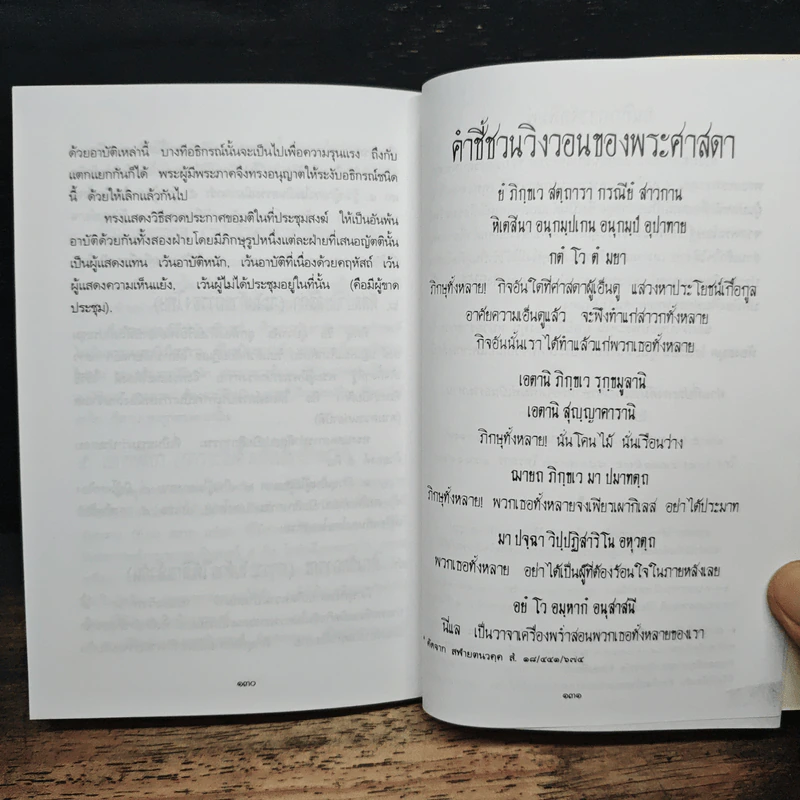 ด้วยอาบัติเหล่านี้ บางทีอธิกรณ์นั้นจะเป็นไปเพื่อความรุนแรง ถึงกับ
แตกแยกกันก็ได้ พระผู้มีพระภาคจึงทรงอนุญาตให้ระงับอธิกรณ์ชนิด
นี้ ด้วยให้เลิกแล้วกันไป
ทรงแสดงวิธีสวดประกาศขอมติในที่ประชุมสงฆ์ ให้เป็นอันพ้น
อาบัติด้วยกันทั้งสองฝ่ายโดยมีภิกษุรูปหนึ่งแต่ละฝ่ายที่เสนอญัตตินั้น
เป็นผู้แสดงแทน เว้นอาบัติหนัก, เว้นอาบัติที่เนื่องด้วยคฤหัสถ์ เว้น
ผู้แสดงความเห็นแย้ง, เว้นผู้ไม่ได้ประชุมอยู่ในที่นั้น (คือมีผู้ขาด
ประชุม).
๑๓๐
คำชี้ชวนวิงวอนของพระศาสดา
ยํ ภิกฺขเว สตฺถารา กรณียํ สาวกานํ
หิเตสินา อนุกมฺปเกน อนุกมฺปํ อุปาทาย
กตํ โว ตํ มยา
ภิกษุทั้งหลาย! กิจอันใดที่ศาสดาผู้เอ็นดู แสวงหาประโยชน์เกื้อกูล
อาศัยความเอ็นดูแล้ว จะพึงทำแก่สาวกทั้งหลาย
กิจอันนั้นเราได้ทำแล้วแก่พวกเธอทั้งหลาย
เอตานิ ภิกฺขเว รุกฺขมูลานิ
เอตานิ สุญฺญาคารานิ
ภิกษุทั้งหลาย! นั่นโคนไม้ นั่นเรือนว่าง
ฌายถ ภิกฺขเว มา ปมาทตฺถ
ภิกษุทั้งหลาย! พวกเธอทั้งหลายจงเพียรเผากิเลส อย่าได้ประมาท
มา ปจฺฉา วิปฺปฏิสาริโน อหุวตฺถ
พวกเธอทั้งหลาย อย่าได้เป็นผู้ที่ต้องร้อนใจในภายหลังเลย
อยํ โว อมฺหากํ อนุสาสนี
นี่แล เป็นวาจาเครื่องพร่ำสอนพวกเธอทั้งหลายของเรา
* คัดจาก สฬายตนวคฺค สํ. ๑๘/๔๔๑/๖๗๔
๑๓๑